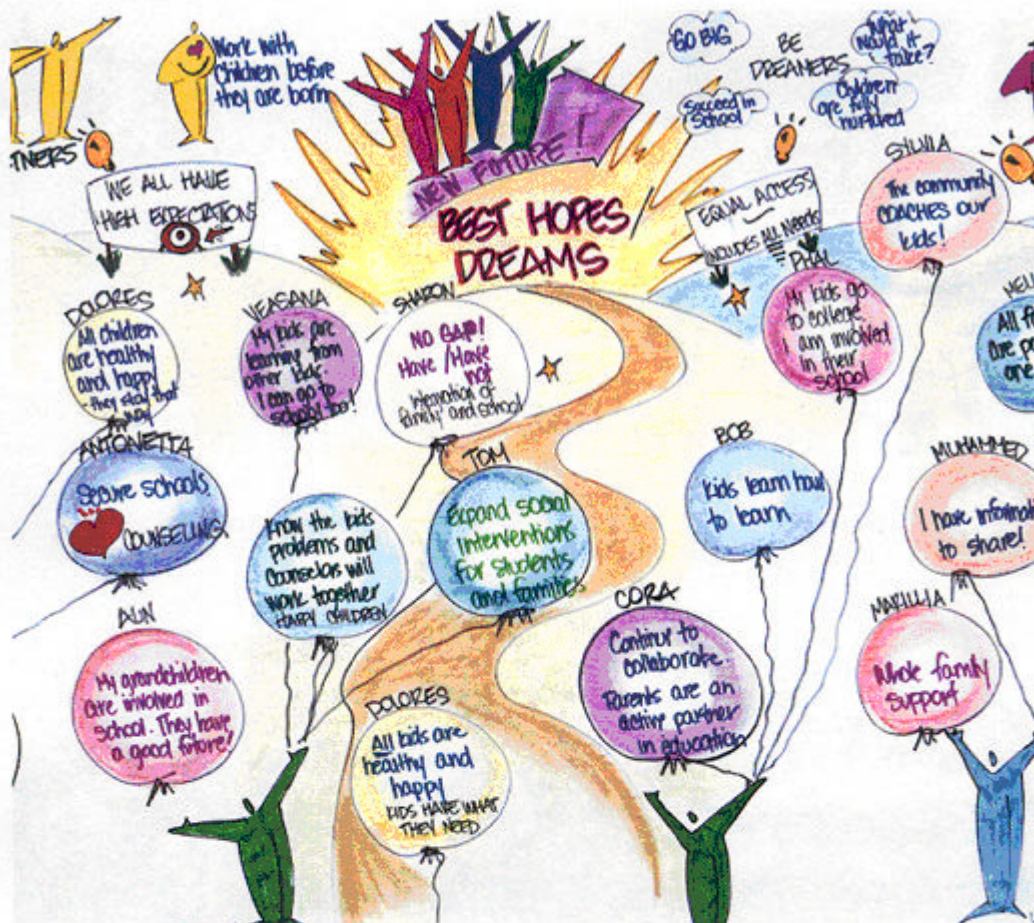 Work with
Children before
they are born
TNERS
WE ALL HAVE
HIGH EXPECTATIONS
NEW FUTURE!
BEST HOPES
DREAMS
GO BIG
BE
DREAMERS
What
would it
take?
Succeed in
School
Children
are fully
nurtured
EQUAL ACCESS
INCLUDES ALL NEEDS
SYLVIA
The community
COACHES OUR
kids!
DOLORES
All children
are healthy
and happy
they stay that
way
VEASANA
My kids are
learning from
other kids
I can go to
school too!
SHARON
NO GAP!
Have / Have
not
integration of
family and school
PHAL
My kids go
to college
I am involved
in their
school
All f
are p
are
ANTONIETTA
Secure schools
COUNSELING
Know the kids
problems and
Counselors will
work together
HAPPY CHILDREN
TOM
Expand social
interventions
for students
and families
BOB
Kids learn how
to learn
MUHAMMED
I have informat
to share!
My grandchildren
are involved in
school. They have
a good future!
DOLORES
All kids are
healthy and
happy
KIDS HAVE WHAT
THEY NEED
CORA
Continue to
collaborate.
Parents are an
active partner
in education
Whole family
support